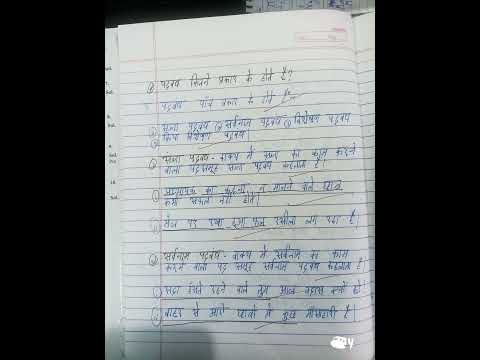 पदबंध कितने प्रकार के होते हैं?
पदबंध पाँच प्रकार के होते हैं -
संज्ञा पदबंध सर्वनाम पदबंध विशेषण पदबंध
क्रिया विशेषण पदबंध
संज्ञा पदबंध - वाक्य में संज्ञा का काम करने
वाला पदसमूह संज्ञा पदबंध कहलाता है।
अध्यापक का कहना न मानने वाले छात्र
कभी सफल नहीं होते।
मेज पर रखा हुआ फल रसीला लग रहा है।
सर्वनाम पदबंध - वाक्य में सर्वनाम का काम
करने वाला पद समूह सर्वनाम पदबंध कहलाता है।
सदा हँसते रहने वाले तुम आज उदास क्यों हो?
बाहर से आये छात्रों में कुछ मांसाहारी हैं।